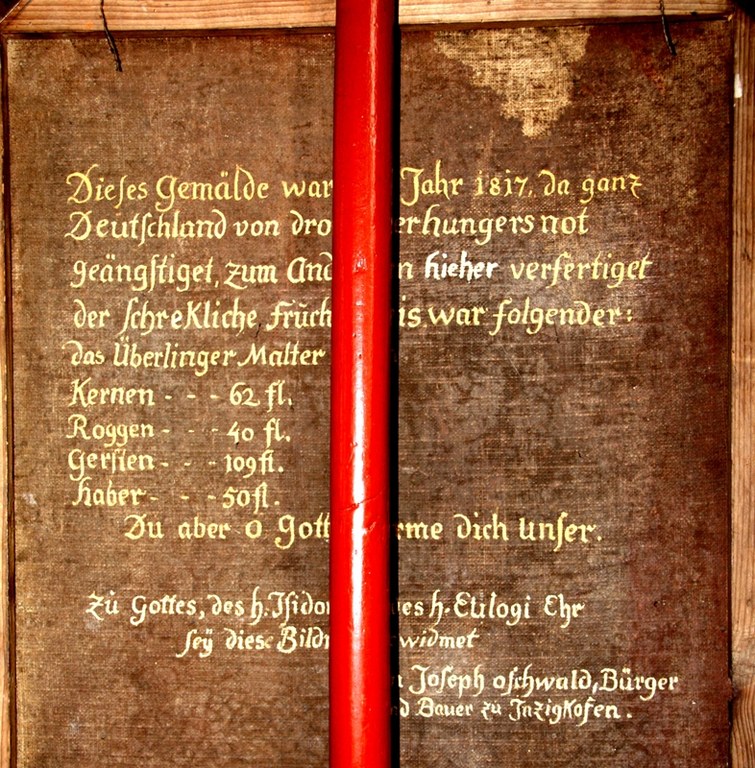 Dieses Gemälde war Jahr 1817, da ganz
Deutschland von dro erhungers not
geängstiget, zum And n hieher verfertiget
der schrekliche Früch is war folgender:
das Überlinger Malter
Kernen - - - 62 fl.
Roggen - - - 40 fl.
Gersten - - - 109 fl.
haber - - - 50 fl.
Du aber O Gott rme dich Unser.
Zů Gottes, des h. Isidor es h. Eulogi Ehr
seÿ diese Bildn widmet
n Joseph oschwald, Bürger
nd Bauer zu Inzigkofen.